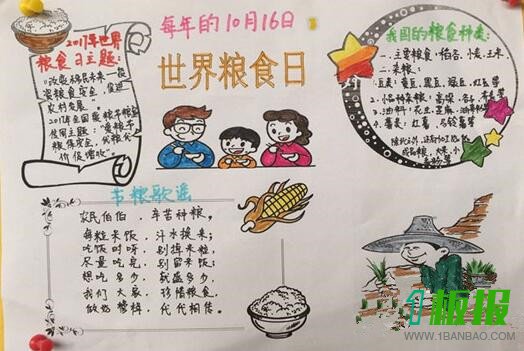 每年的10月16日
世界粮食日
2017年世界
粮食日主题：
"改变移民未来—投
资粮食安全，促进
农村发展。"
2017年全国爱粮节粮宣
传周主题："爱粮节
粮保安全，优粮优
价促增收"
我国的粮食种类：
一.主要粮食：稻谷、小麦、玉米
二.杂粮：
1.豆类：黄豆、黑豆、绿豆、红豆等
2.小品种杂粮：高粱、谷子、
3.油料：花生、芝麻、油菜籽
4.薯类：红薯、马铃薯等
除此以外，还有
成品粮，大米、小
节粮歌谣
农民伯伯，辛苦种粮，
每粒米饭，汗水换来；
吃饭时呀，别掉米粒，
尽量吃完，别留米饭；
想吃多少，就盛多少，
我们大家，珍惜粮食，
做好营料，代代相传。
1板报
WWW.1BANBAO.COM